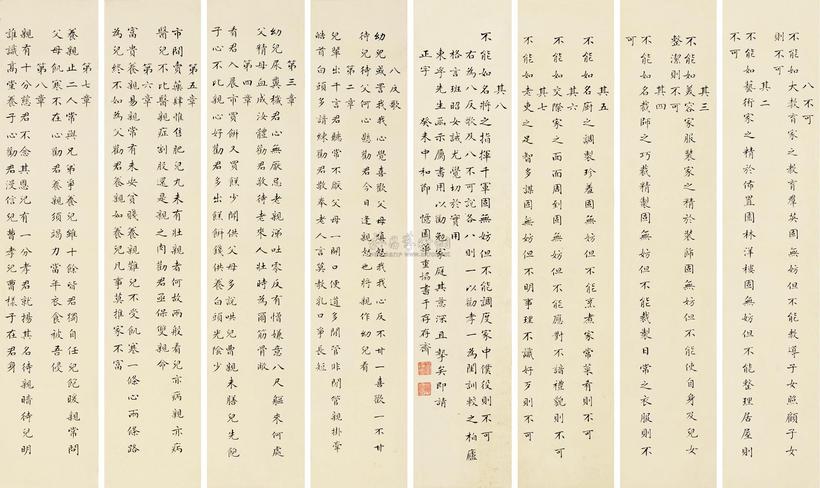 八不可
不能如大教育家之教育羣英固無妨但不能教導子女照顧子女
則不可
其二
不能如藝術家之精於佈置園林洋樓固無妨但不能整理居屋則
不可
其三
不能如美容家服裝家之精於裝飾固無妨但不能使自身及兒女
整潔則不可
其四
不能如名裁師之巧裁精製固無妨但不能裁製日常之衣服則不
可
其五
不能如名廚之調製珍羞固無妨但不能烹煮家常菜肴則不可
其六
不能如交際家之面面周到固無妨但不能應對不諳禮貌則不可
其七
不能如老吏之足智多謀固無妨但不明事理不識好歹則不可
其八
不能如名將之指揮千軍固無妨但不能調度家中僕役則不可
右為八反歌及八不可說各八則一以勸孝一為閨訓較之柏廬
格言班昭女誡尤覺切於實用
東孚先生函示屬書用以勸勉家庭其意深且摯矣即請
正字 癸未中和節 憶園華重協書于存存齋
八反歌
幼兒或詈我我心覺喜歡父母嗔怒我我心反不甘一喜歡一不甘
待兒待父何心懸勸君今日逢親怒也將親作幼兒看
第二章
兒輩出千言君聽常不厭父母一開口便道多閒管非閒管親掛牽
皓首白頭多諳練勸君敬奉老人言莫教乳口爭長短
第三章
幼兒尿糞穢君心無厭忌老親涕吐零反有憎嫌意八尺軀來何處
父精母血成汝體勸君敬待老來人壯時為爾筋骨敝
第四章
看君入晨市買餅又買餻少聞供父母多說哄兒曹親未膳兒先飽
子心不比親心好勸君多出餅錢供養白頭光陰少
第五章
市間賣藥肆惟有肥兒丸未有壯親者何故兩般看兒亦病親亦病
醫兒不比醫親症割股還是親之肉勸君亟保雙親命
第六章
富貴養親易親常有未安貧賤養兒難兒不受飢寒一條心兩條路
為兒終不如為父勸君養親如養兒凡事莫推家不富
第七章
養親止二人常與兄弟爭養兒雖十餘皆君獨自任兒飽暖親常問
父母飢寒不在心勸君養親須竭力當年衣食被吾侵
第八章
親有十分慈君不念其恩兒有一分孝君就揚其名待親暗待兒明
誰識高堂養子心勸君漫信兒曹孝兒曹樣子在君身